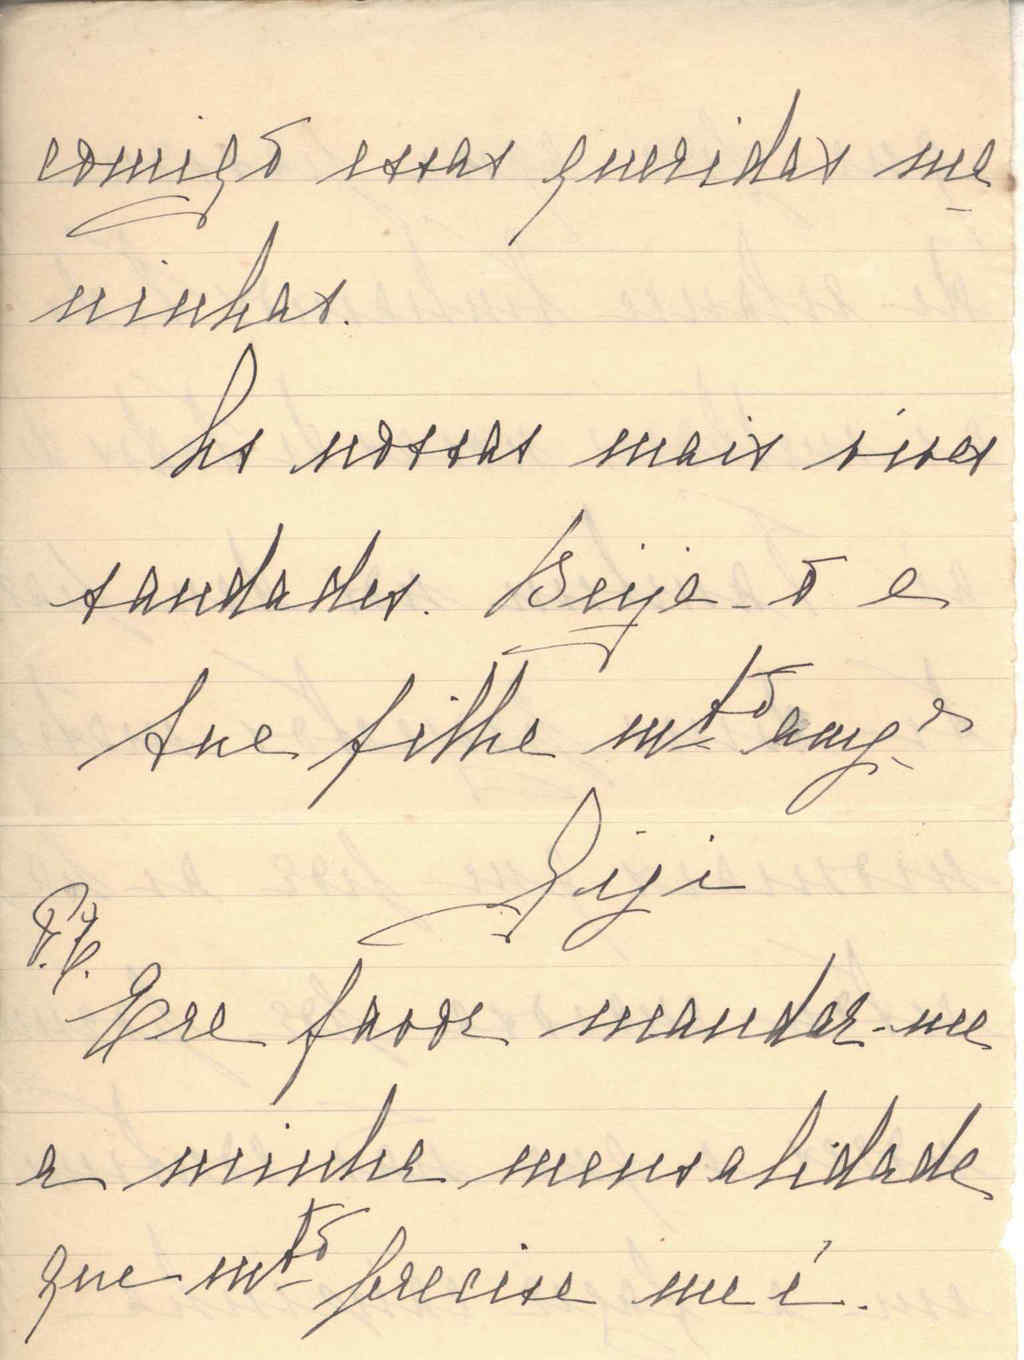 comigo essas queridas me
ninhas.
As nossas mais vivas
saudades. Beija-o a
sua filha mto amga
Gigi
P.S.
Era favor mandar-me
a minha mensalidade
que mto precisa me é.